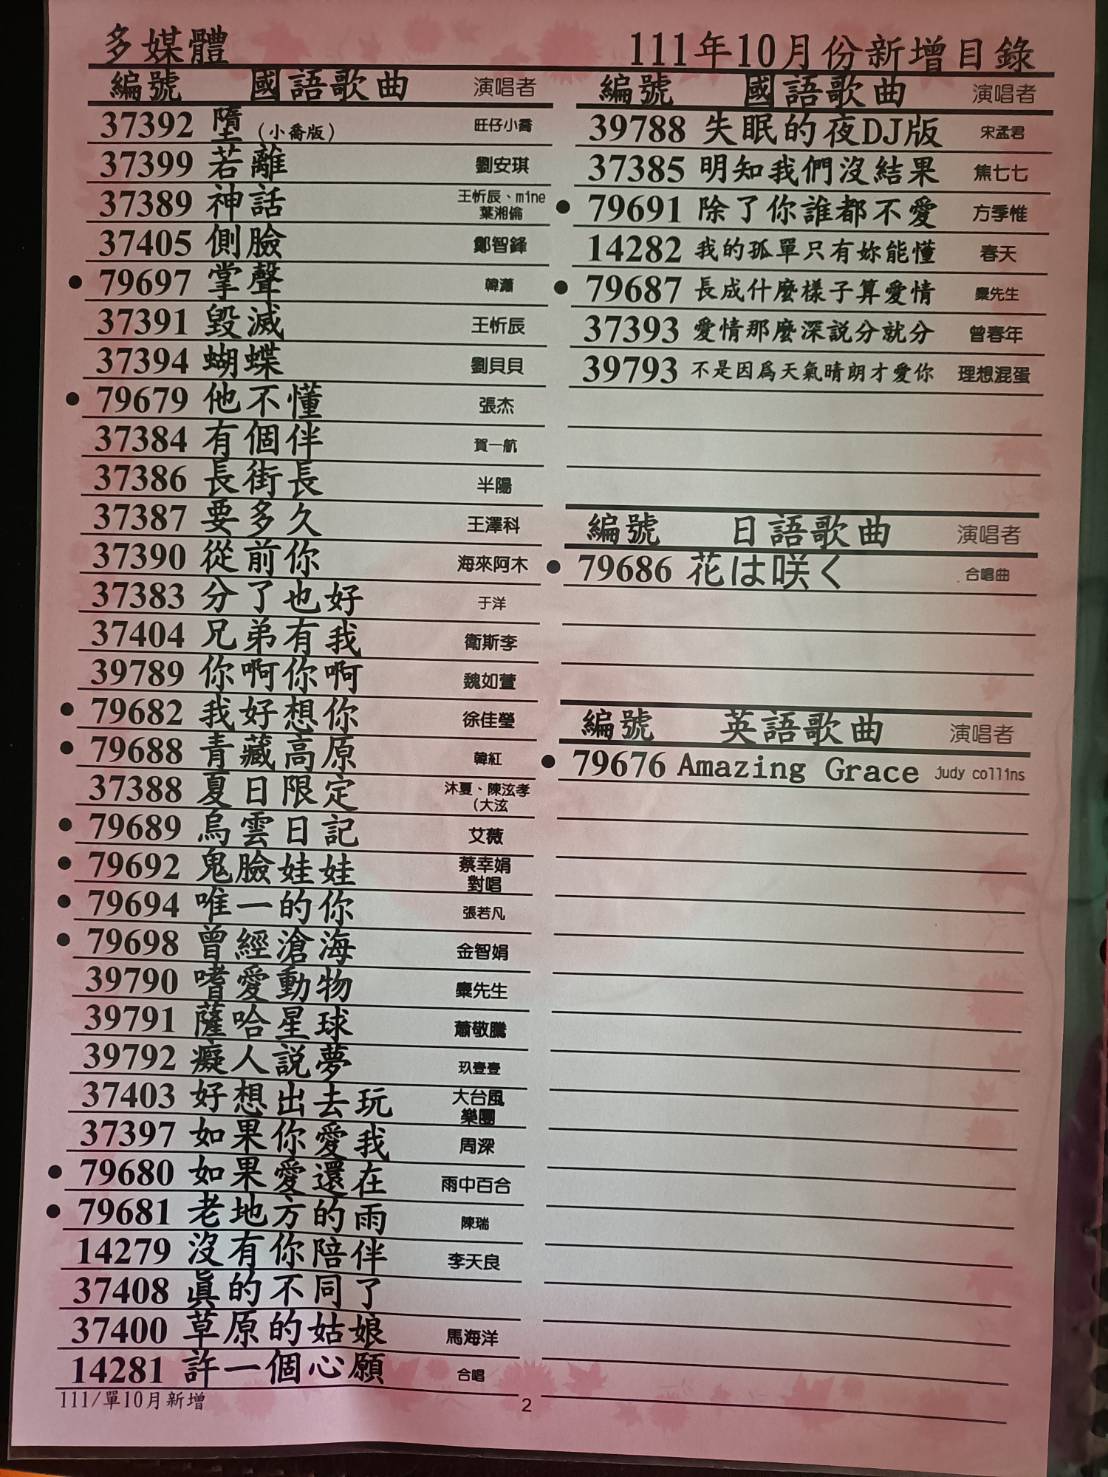 多媒體
111年10月份新增目錄
編號 國語歌曲 演唱者
37392 墮 (小喬版) 旺仔小喬
37399 若離 劉安琪
37389 神話 王忻辰、mine 葉湘倫
37405 側臉 鄭智鋒
● 79697 掌聲 韓瀟
37391 毀滅 王忻辰
37394 蝴蝶 劉貝貝
● 79679 他不懂 張杰
37384 有個伴 賀一航
37386 長街長 半陽
37387 要多久 王澤科
37390 從前你 海來阿木
37383 分了也好 于洋
37404 兄弟有我 衛斯李
39789 你啊你啊 魏如萱
● 79682 我好想你 徐佳瑩
● 79688 青藏高原 韓紅
37388 夏日限定 沐夏、陳泫孝 (大泫
● 79689 烏雲日記 艾薇
● 79692 鬼臉娃娃 蔡幸娟 對唱
● 79694 唯一的你 張若凡
● 79698 曾經滄海 金智娟
39790 嗜愛動物 麋先生
39791 薩哈星球 蕭敬騰
39792 癡人說夢 玖壹壹
37403 好想出去玩 大台風 樂團
37397 如果你愛我 周深
● 79680 如果愛還在 雨中百合
● 79681 老地方的雨 陳瑞
14279 沒有你陪伴 李天良
37408 真的不同了
37400 草原的姑娘 馬海洋
14281 許一個心願 合唱
編號 國語歌曲 演唱者
39788 失眠的夜DJ版 宋孟君
37385 明知我們沒結果 焦七七
● 79691 除了你誰都不愛 方季惟
14282 我的孤單只有妳能懂 春天
● 79687 長成什麼樣子算愛情 麋先生
37393 愛情那麼深説分就分 曾春年
39793 不是因爲天氣晴朗才愛你 理想混蛋
編號 日語歌曲 演唱者
● 79686 花は咲く 合唱曲
編號 英語歌曲 演唱者
● 79676 Amazing Grace judy collins
111/單10月新增
2